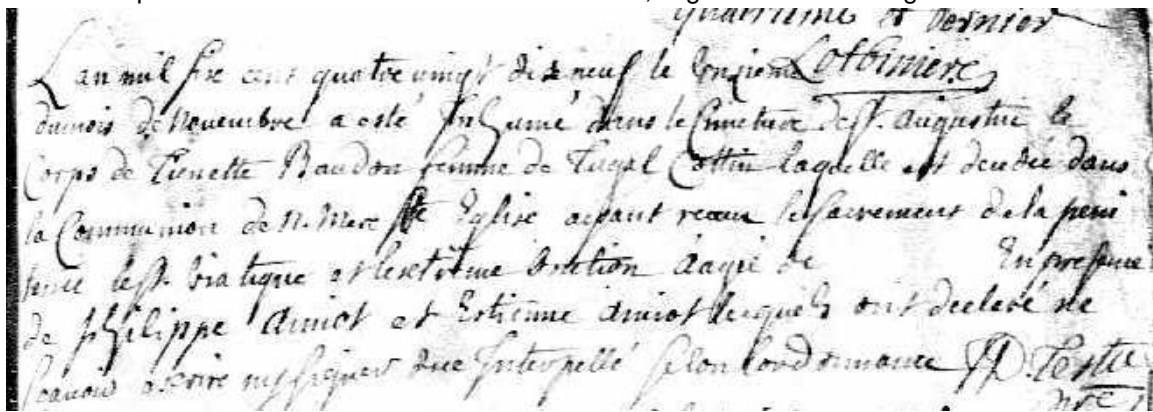 quatrieme et dernier
Lan mil sixe cens quatre vingt dix neuf le onzieme Lotbiniere
du mois de Novembre a esté Inhumé dans le Cimetiere de St. Augustin le
Corps de Tienette Baudon femme de Tugal Cottin laquelle est decedée dans
la Communion de N. Mere Ste Eglise ayant receu le sacrement de la peni
tence le St. Viatique et lextréme onction aagée de En presence
de philippe amiot et Estienne amiot lesquels ont declaré ne
scavoir escrire ny signer due Interpellé selon lordonnance